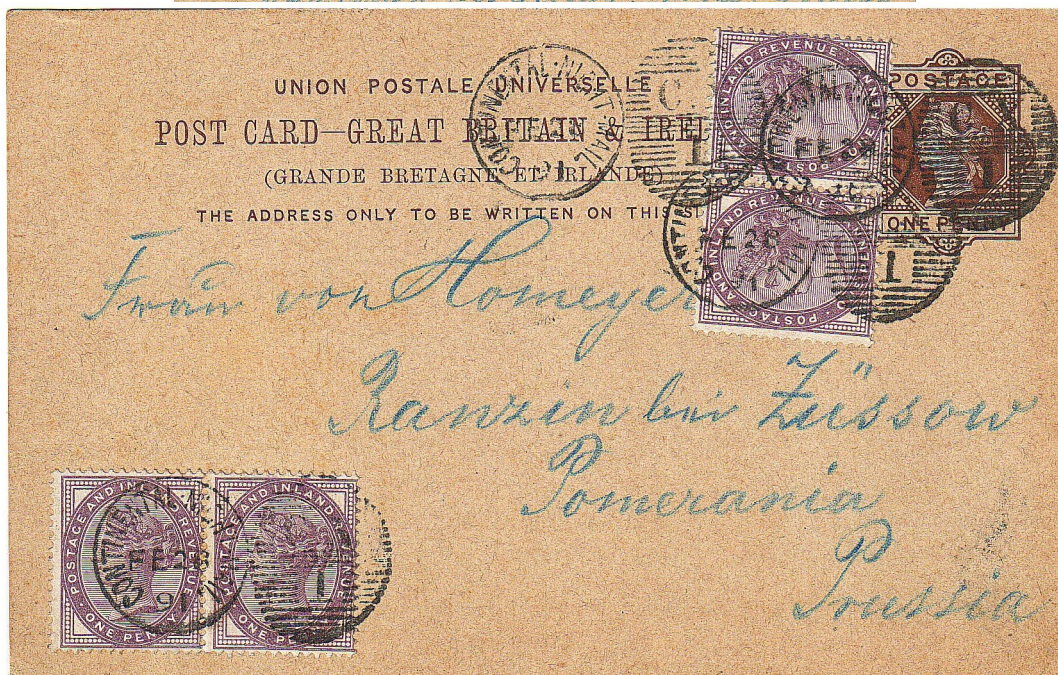 UNION POSTALE UNIVERSELLE
POST CARD—GREAT BRITAIN & IREL
(GRANDE BRETAGNE ET IRLANDE)
THE ADDRESS ONLY TO BE WRITTEN ON THIS SI
POSTAGE
ONE PENNY
POSTAGE AND INLAND REVENUE
POSTAGE AND INLAND REVENUE
CONTINENTAL NIGHT MAIL
91
FE 28
1
1
1
Frau von Homeyer
Ranzin bei Züssow
Pomerania
Prussia
POSTAGE AND INLAND REVENUE
ONE PENNY
POSTAGE AND INLAND REVENUE
ONE PE
CONTINENTAL
FE 28
91
1